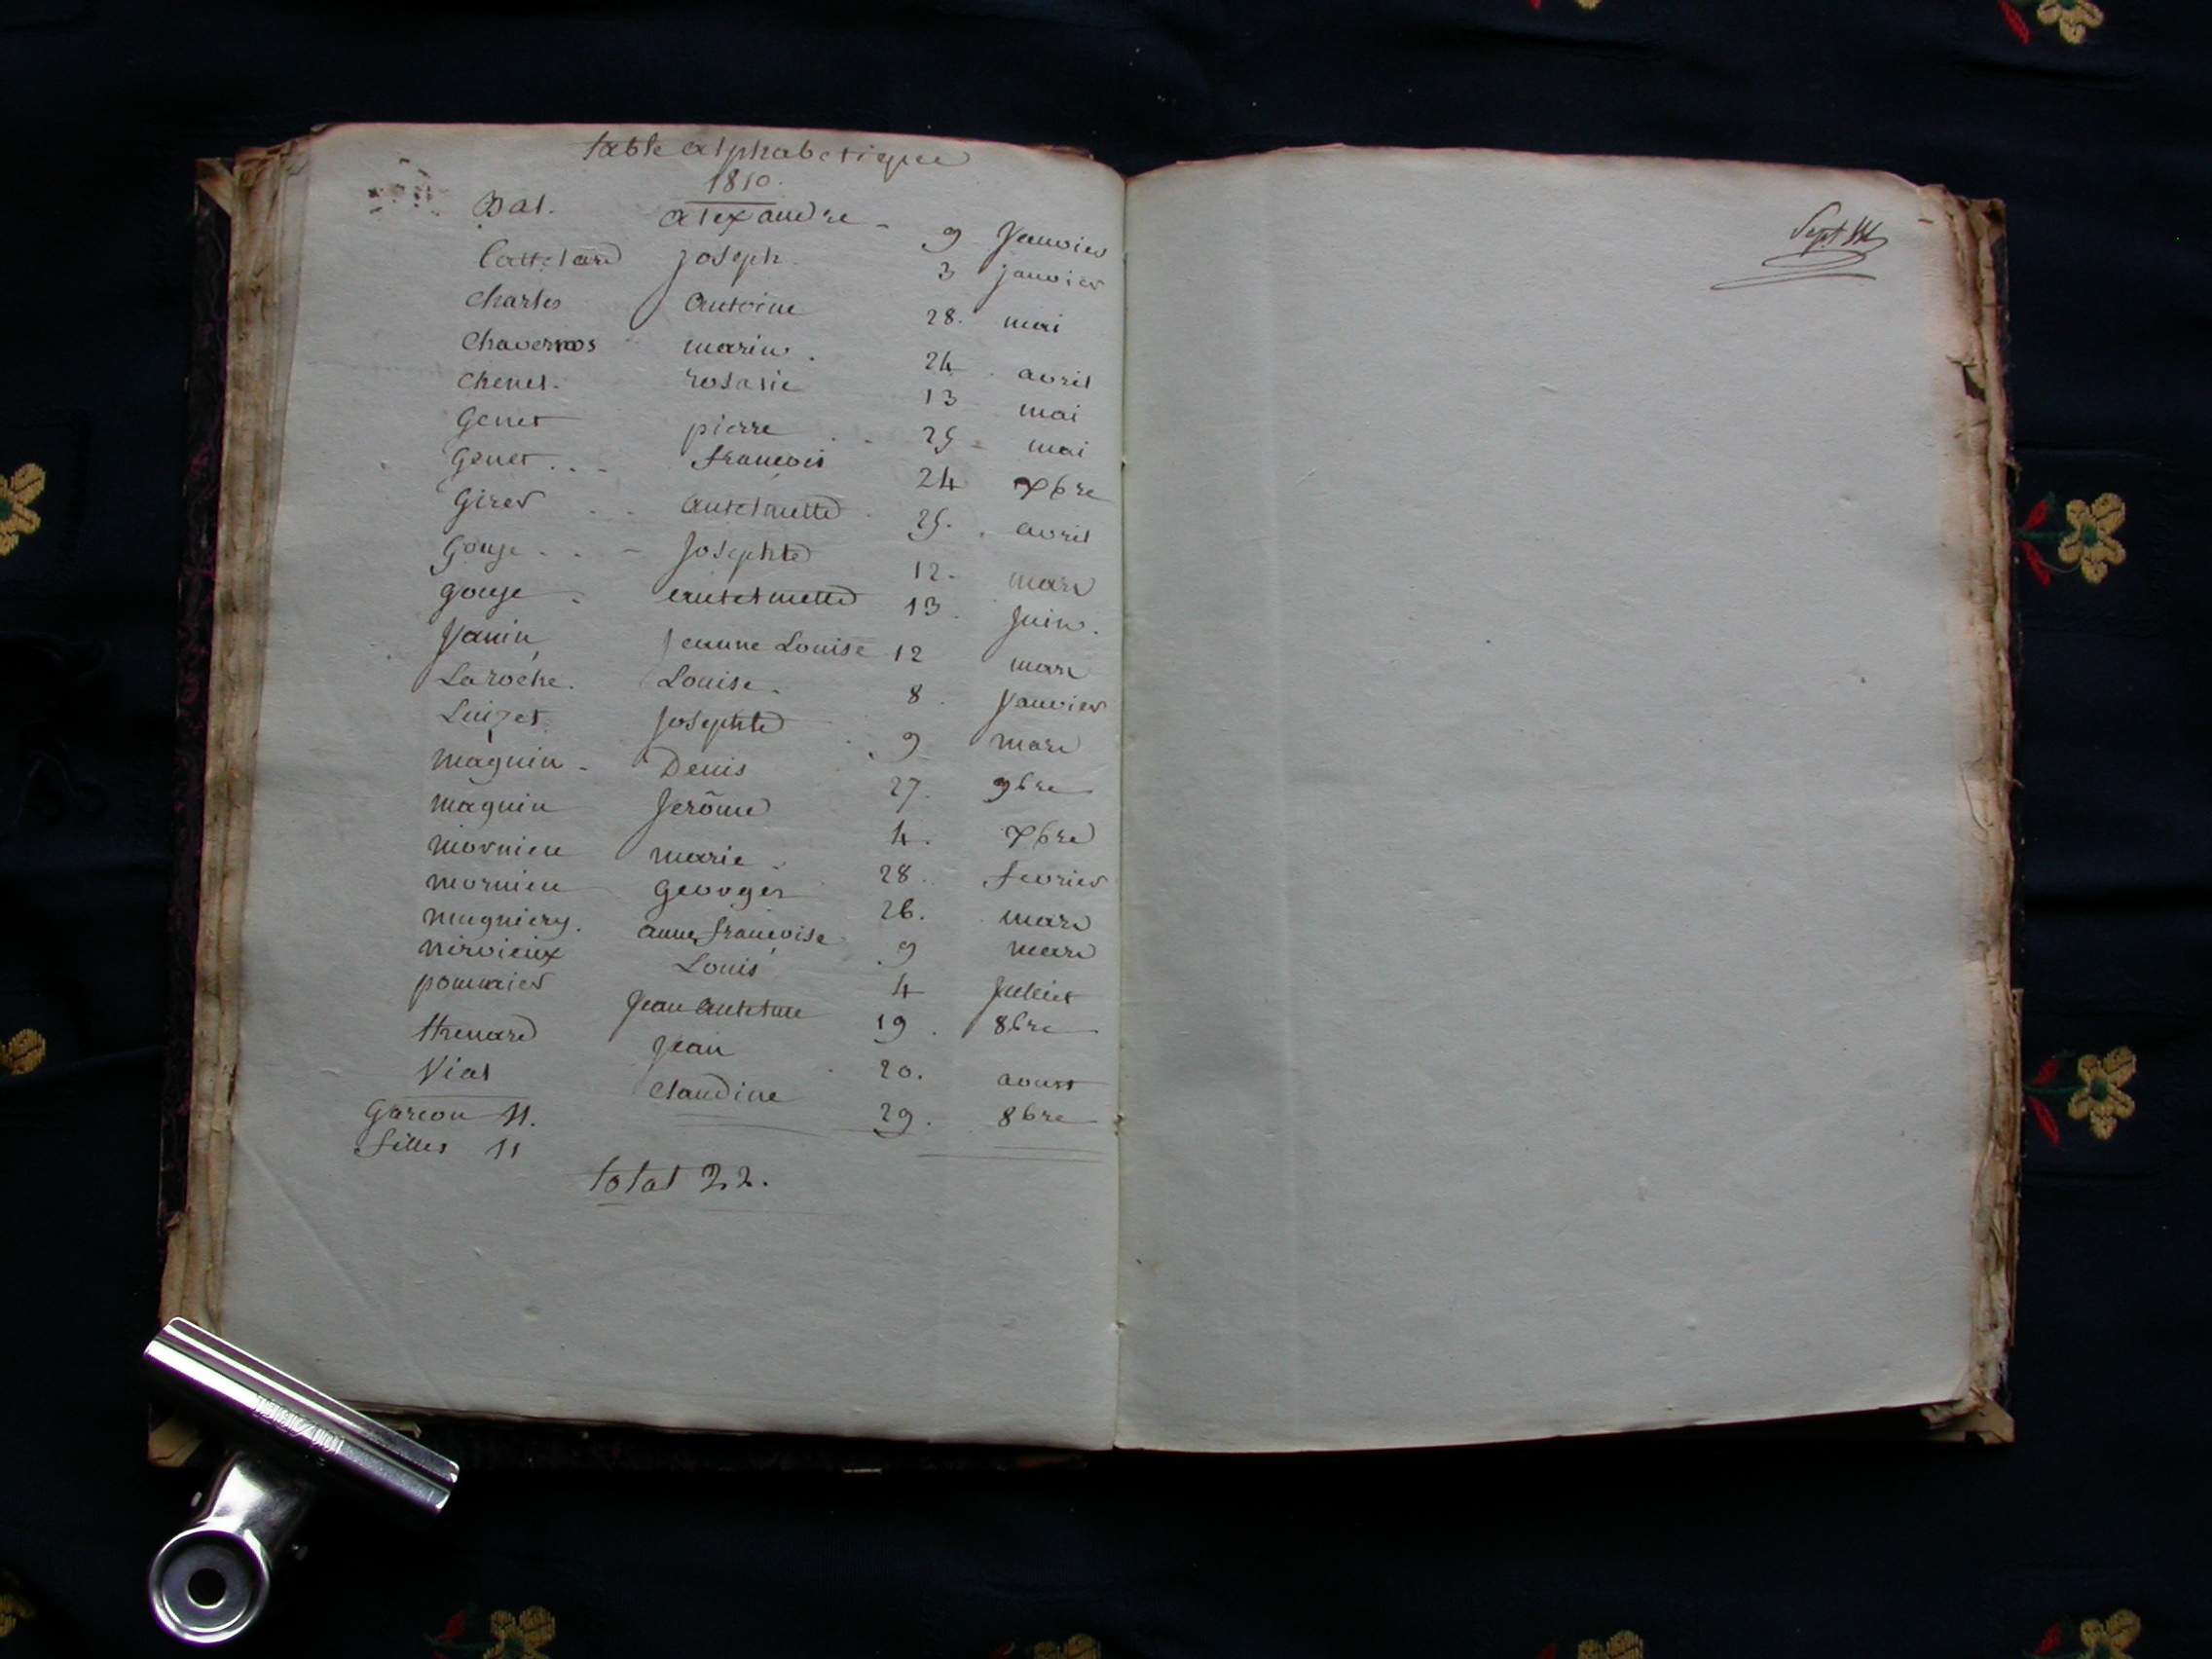 table alphabetique
1810.
Bal. alexandre - 9 Janvier
Cattelard joseph. 3 janvier
Charles Antoine 28. mai
Chavernos marin. 24. avril
Chenel. rosalie 13 mai
Genet pierre . . 25 - mai
Genet . . - françois 24 Xbre
Giret . . antelmette . 25. avril
Gouje . . - Josephte 12. mars
gouje - antelmette 13. Juin.
Janin Jeanne Louise 12 mars
Laroche. Louise. 8. Janvier
Luizet. Josephte . 9 mars
magnin - Denis 27. 9bre
magnin Jerôme 4. Xbre
mornieu marie. 28. fevrier
mornieu georges 26. mars
mugniery. anne françoise 9 mars
nervieux Louis 4 Juliet
pommier Jean Antelme 19. 8bre
threnard Jean . 20. aoust
Vial Claudine 29. 8bre
Garcon 11.
filles 11
total 22.
Sept